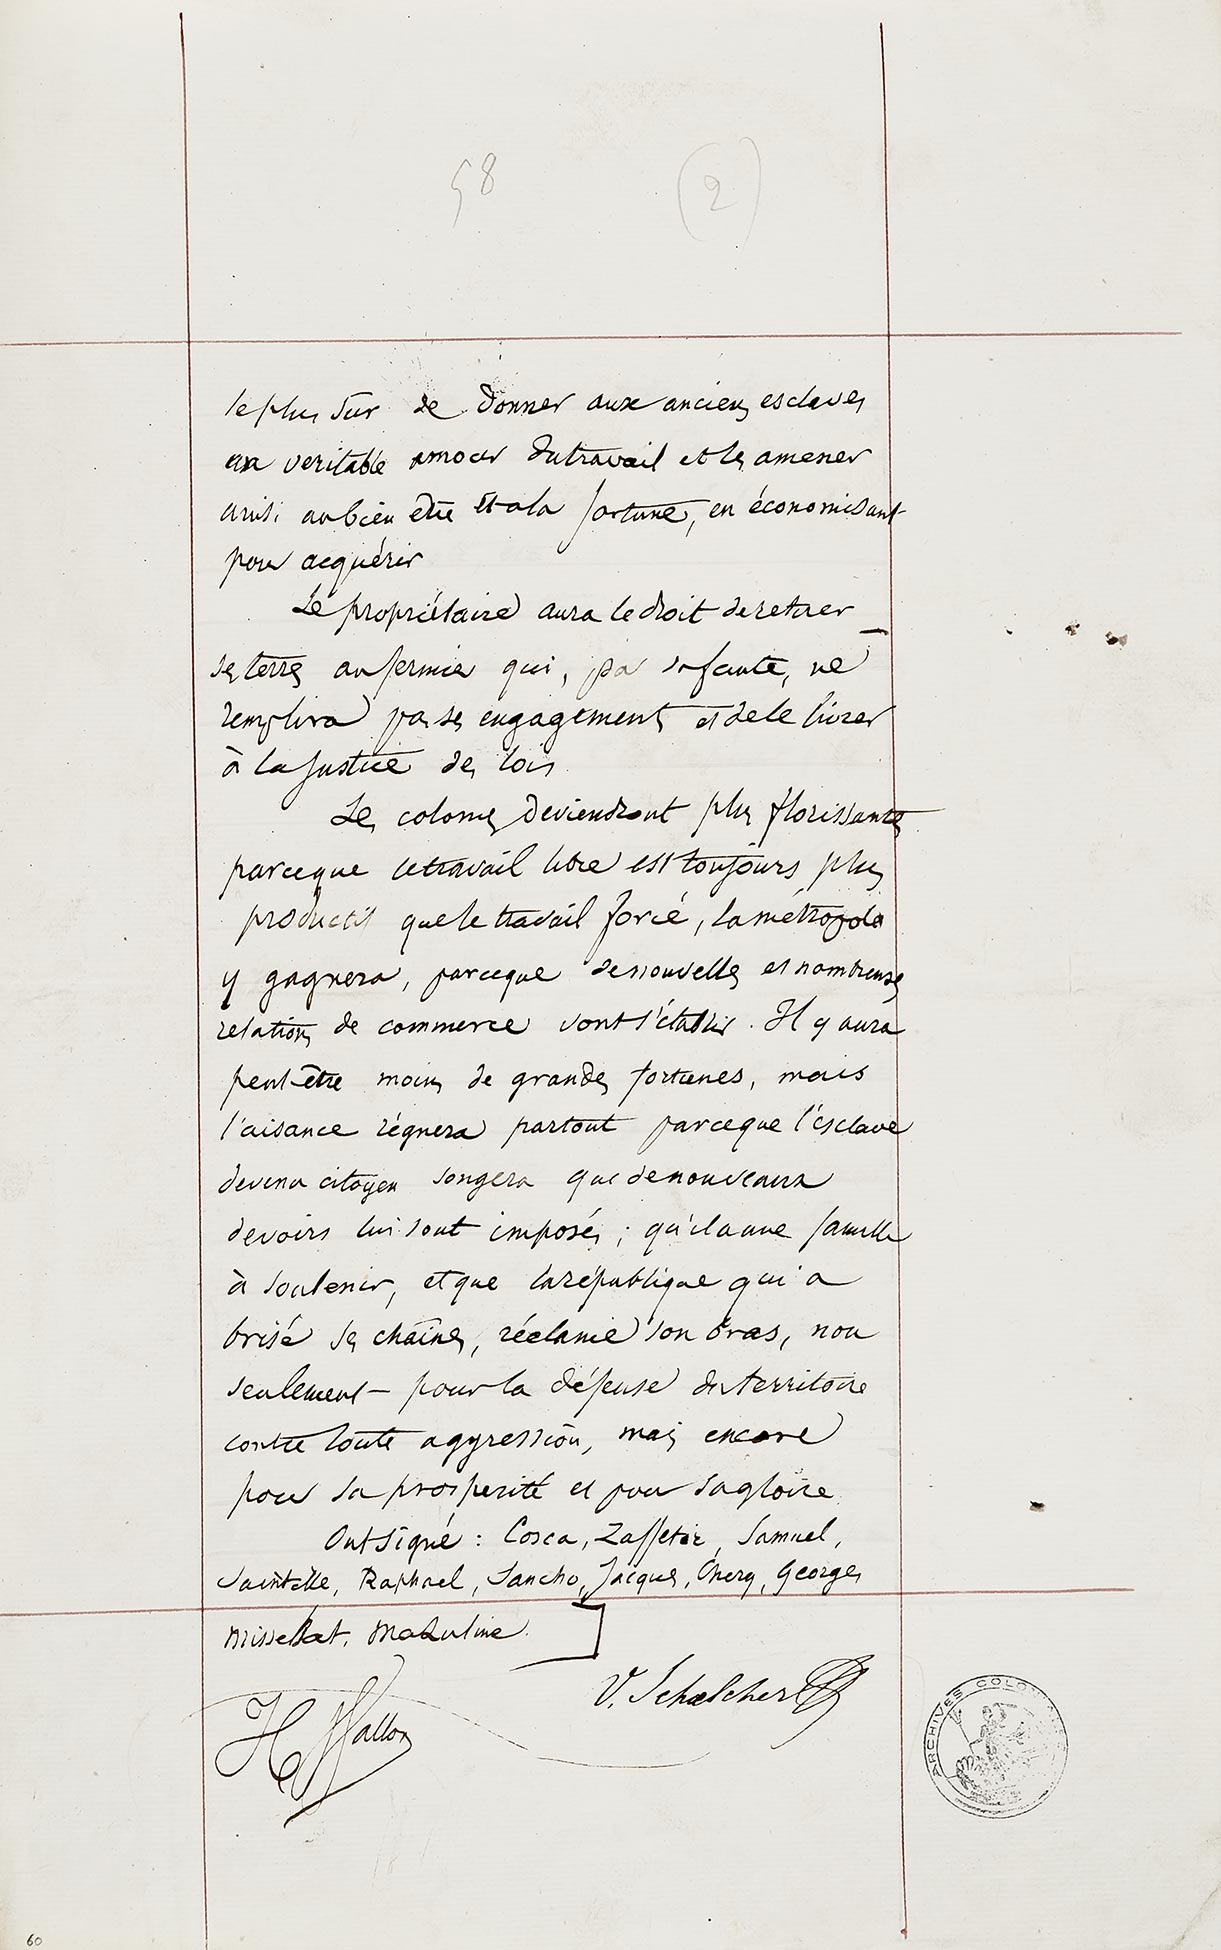 58 (2)
le plus sur de donner aux anciens esclaves
un veritable amour du travail et les amener
ainsi au bien être et a la fortune, en économisant
pour acquérir
Le propriétaire aura le droit de retirer
ses terres au fermier qui, par sa faute, ne
remplira pas ses engagements et de le livrer
à la justice des lois
Les colonies deviendront plus florissantes
parceque le travail libre est toujours plus
productif que le travail forcé, la métropole
y gagnera, parceque de nouvelles et nombreuses
relations de commerce vont s'établir. Il y aura
peut-être moins de grandes fortunes, mais
l'aisance règnera partout parceque l'esclave
devenu citoyen songera que de nouveaux
devoirs lui sont imposés; qu'il a une famille
à soutenir, et que la république qui a
brisé ses chaînes, réclame son bras, non
seulement - pour la défense du territoire
contre toute aggression, mais encore
pour sa prosperité et pour sa gloire
Ont signé : Cosca, Samuel,
Raphael, Sancho, Jacques, Chery, Georges
V. Schœlcher
H Wallon
ARCHIVES COLONIALES
60